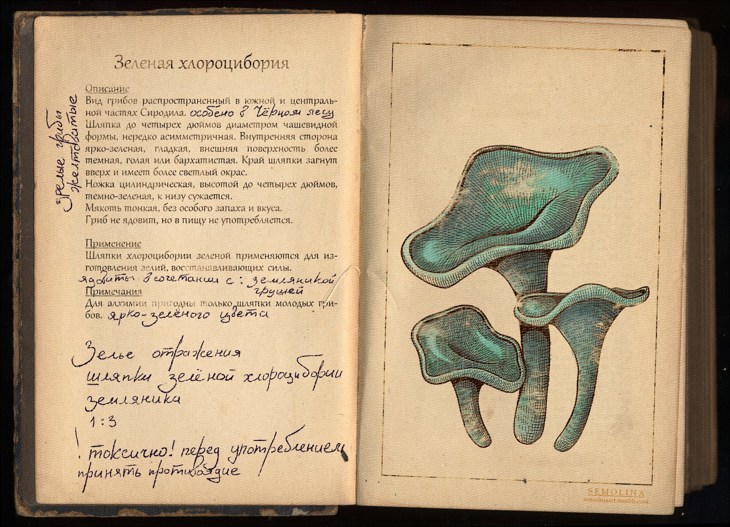 Зеленая хлороцибория
Описание
Вид грибов распространенный в южной и централь-
ной частях Сиродила. особено в Чёрном лесу
Шляпка до четырех дюймов диаметром чашевидной
формы, нередко асимметричная. Внутренняя сторона
ярко-зеленая, гладкая, внешняя поверхность более
темная, голая или бархатистая. Край шляпки загнут
вверх и имеет более светлый окрас.
Ножка цилиндрическая, высотой до четырех дюймов,
темно-зеленая, к низу сужается.
Мякоть тонкая, без особого запаха и вкуса.
Гриб не ядовит, но в пищу не употребляется.
зрелые грибы
желтоватые
Применение
Шляпки хлороцибории зеленой применяются для из-
готовления зелий, восстанавливающих силы.
ядовиты в сочетании с: земляникой
грушей
Примечания
Для алхимии пригодны только шляпки молодых гри-
бов. ярко-зелёного цвета
Зелье отражения
шляпки зелёной хлороцибории
земляника
1:3
! токсично! перед употреблением
принять противоядие
SEMOLINA